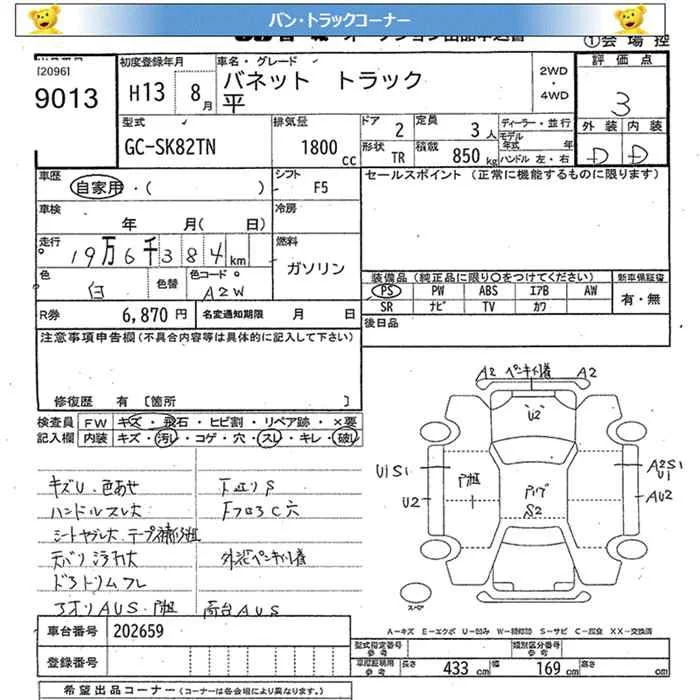 バン・トラックコーナー
オークション出品申込書
①会 場 控
[2096]
9013
初度登録年月
H13 8月
車名・グレード
バネット トラック
平
2WD
・
4WD
評 価 点
3
外 装 内 装
D D
型式
GC-SK82TN
排気量
1800cc
ドア 2
定員 3人
形状 TR
積載 850kg
ディーラー・並行
モデル年式 年
ハンドル 左・右
車歴
自家用・( )
シフト F5
セールスポイント (正常に機能するものに限ります)
車検
年 月( 日)
冷房
走行
19万6千384km
燃料
ガソリン
色
白
色替
色コード
A2W
装備品(純正品に限り○をつけてください)
PS PW ABS エアB AW
SR ナビ TV カワ
新車保証書
有・無
R券 6,870円
名変通知期限 月 日
後日品
注意事項申告欄(不具合内容等は具体的に記入して下さい)
修復歴 有 〔箇所
検査員記入欄
FW キズ・飛石・ヒビ割・リペア跡・×要
内装 キズ・汚レ・コゲ・穴・スレ・キレ・破レ
キズU・色あせ
ハンドルスレ大
シートヤブレ大
下廻りS
A2 A2
U2
U1S1
U2
S2
A2S1
U1
AU2
スペア
A－キズ E－エクボ U－凹み W－補修跡 S－サビ C－腐食 XX－交換済
車台番号 202659
登録番号
型式指定番号
参考
類別区分番号
参考
車庫証明用
参考
長さ 433cm
幅 169cm
高さ cm
希望出品コーナー(コーナーは各会場により異なります。)